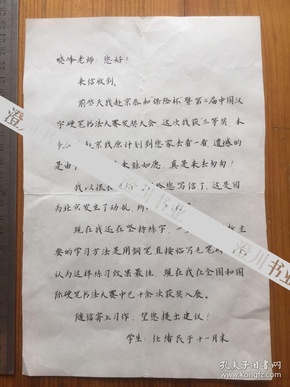 晓峰老师：您好！
来信收到。
前些天我赴京参加保险杯暨第二届中国汉
字硬笔书法大赛发奖大会，这次我获三等奖，本
赴京我原计划到您家去看一看，遗憾的
是由 未能如愿，真是来去匆匆！
我以很长 给您写信了，这是因
为北京发生了动乱，所
现在我还在坚持练字，一 主
要的学习方法是用钢笔直接临写毛笔
认为这样练习效果最佳，现在我在全国和国
际硬笔书法大赛中已十余次获奖入展。
随信寄上习作，望您提出建议！
学生： 于十一月末
澄川书业
澄川书业
孔夫子旧书网